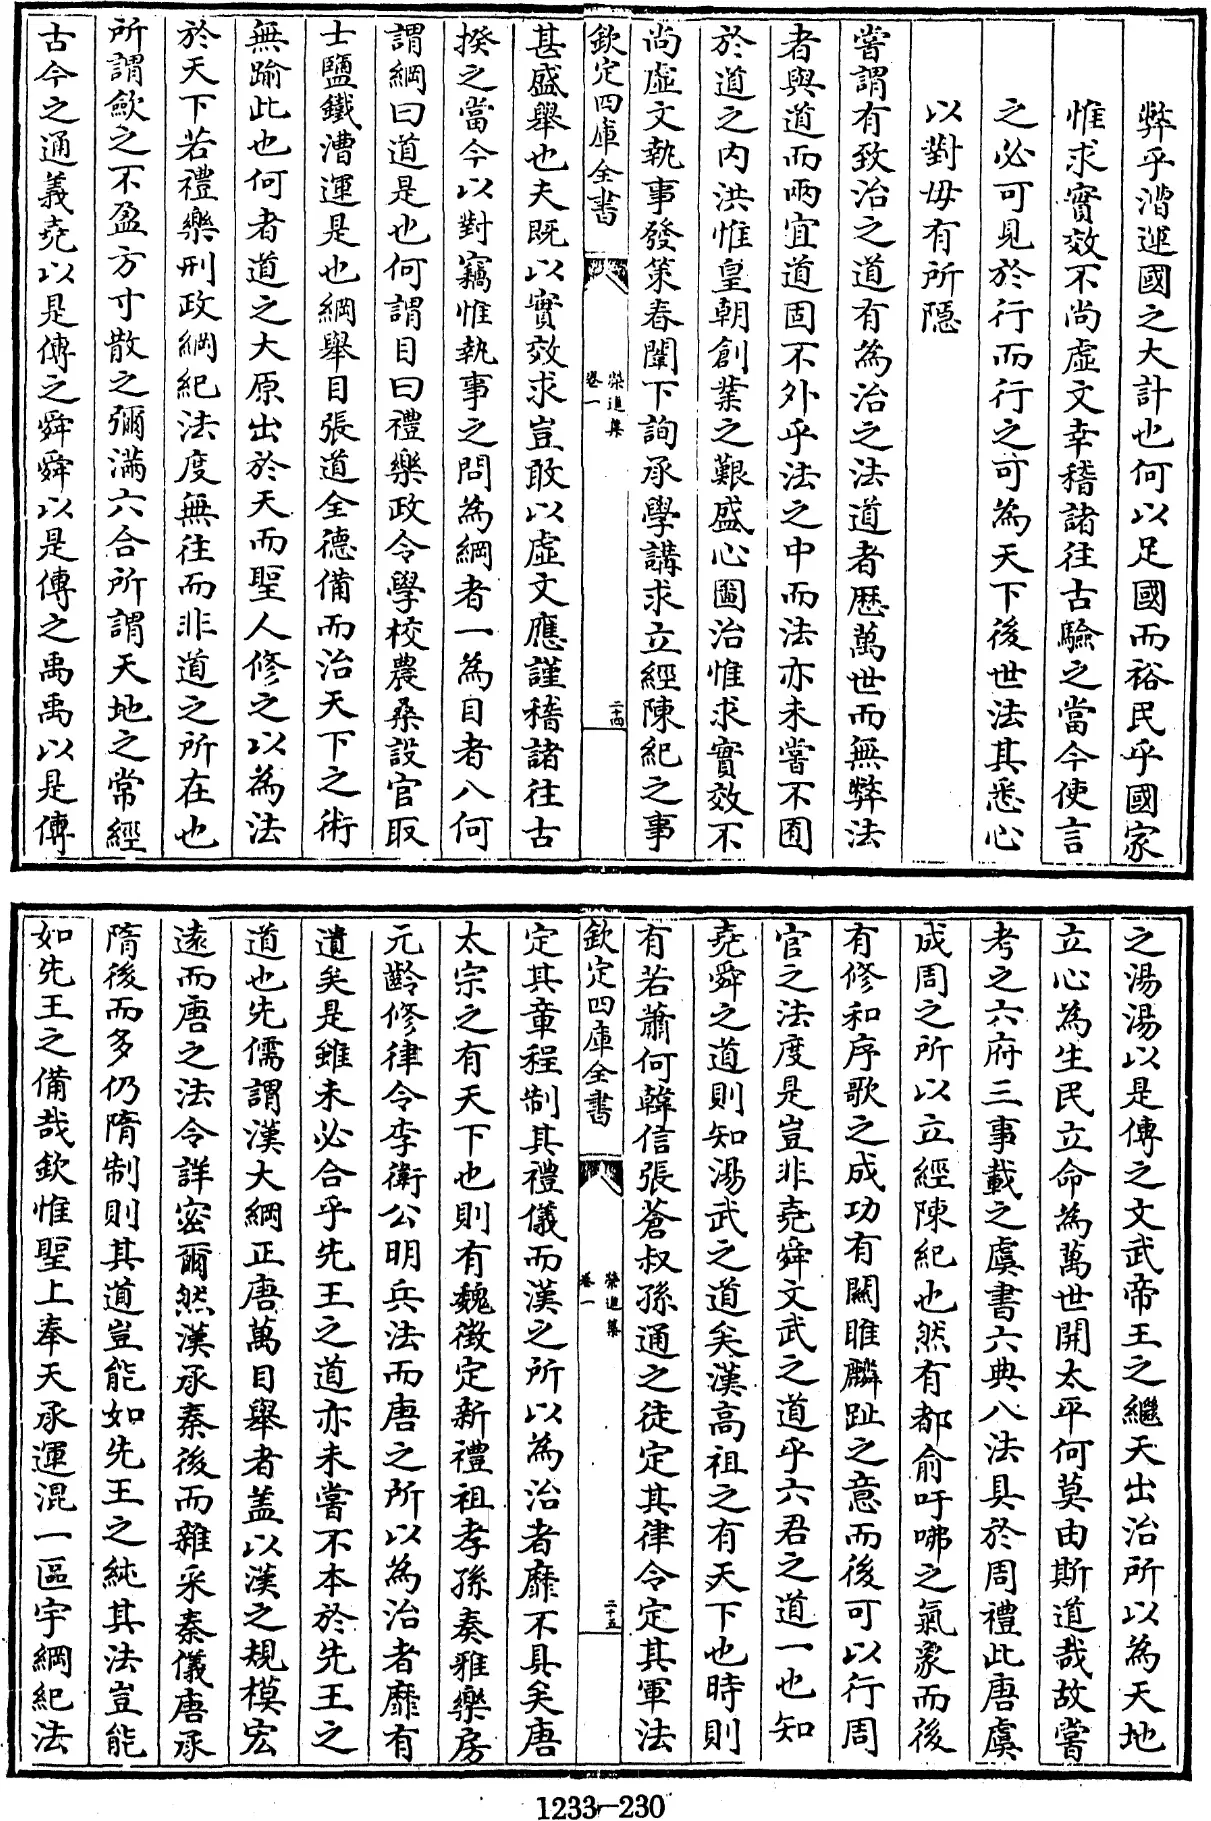 弊乎漕運國之大計也何以足國而裕民乎國家
惟求實效不尚虛文幸稽諸往古驗之當今使言
之必可見於行而行之可為天下後世法其悉心
以對毋有所隱
嘗謂有致治之道有為治之法道者歴萬世而無弊法
者與道而兩宜道固不外乎法之中而法亦未嘗不囿
於道之内洪惟皇朝創業之艱盛心圖治惟求實效不
尚虛文執事發策春闈下詢承學講求立經陳紀之事
欽定四庫全書
榮進集
卷一
二十四
甚盛舉也夫既以實效求豈敢以虛文應謹稽諸往古
揆之當今以對竊惟執事之問為綱者一為目者八何
謂綱曰道是也何謂目曰禮樂政令學校農桑設官取
士鹽鐵漕運是也綱舉目張道全德備而治天下之術
無踰此也何者道之大原出於天而聖人修之以為法
於天下若禮樂刑政綱紀法度無往而非道之所在也
所謂歛之不盈方寸散之彌滿六合所謂天地之常經
古今之通義堯以是傳之舜舜以是傳之禹禹以是傳
之湯湯以是傳之文武帝王之繼天出治所以為天地
立心為生民立命為萬世開太平何莫由斯道哉故嘗
考之六府三事載之虞書六典八法具於周禮此唐虞
成周之所以立經陳紀也然有都俞吁咈之氣象而後
有修和序歌之成功有關雎麟趾之意而後可以行周
官之法度是豈非堯舜文武之道乎六君之道一也知
堯舜之道則知湯武之道矣漢高祖之有天下也時則
有若蕭何韓信張蒼叔孫通之徒定其律令定其軍法
欽定四庫全書
榮進集
卷一
二十五
定其章程制其禮儀而漢之所以為治者靡不具矣唐
太宗之有天下也則有魏徴定新禮祖孝孫奏雅樂房
元齡修律令李衛公明兵法而唐之所以為治者靡有
遺矣是雖未必合乎先王之道亦未嘗不本於先王之
道也先儒謂漢大綱正唐萬目舉者蓋以漢之規模宏
遠而唐之法令詳密爾然漢承秦後而雜采秦儀唐承
隋後而多仍隋制則其道豈能如先王之純其法豈能
如先王之備哉欽惟聖上奉天承運混一區宇綱紀法
1233-230